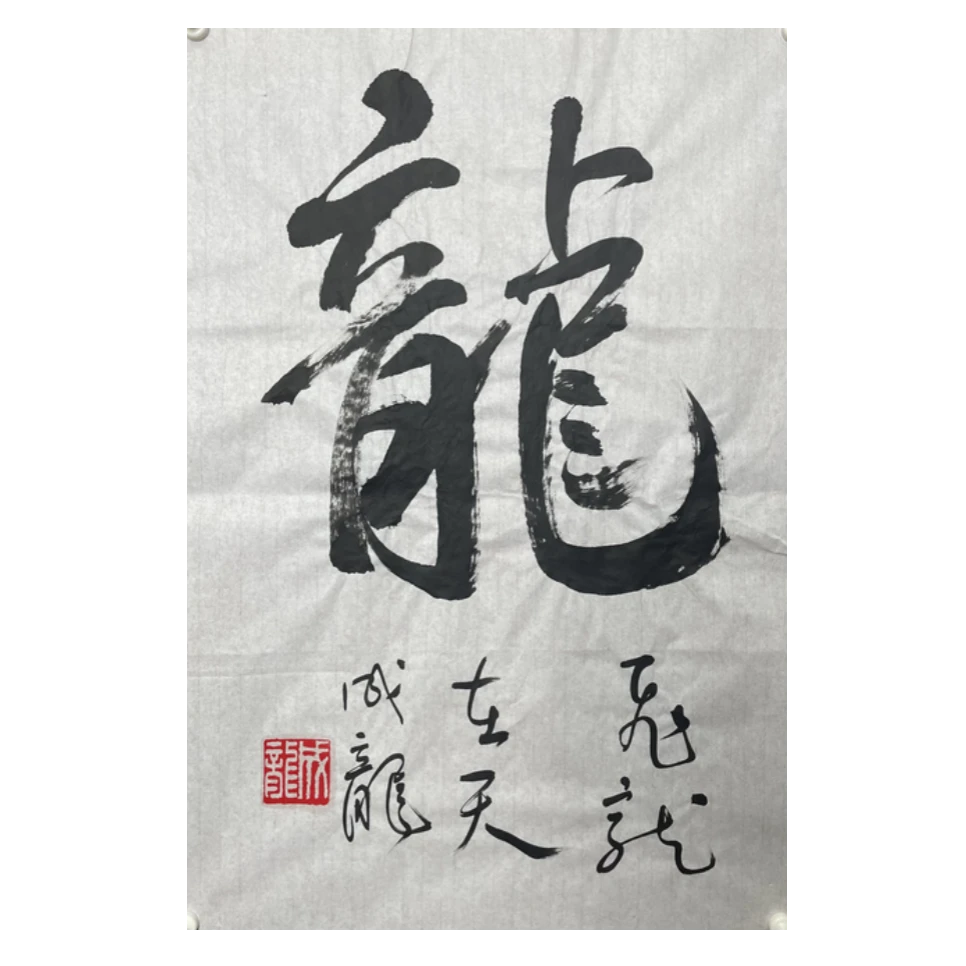 龍
飛龍
在天
成龍
成龍